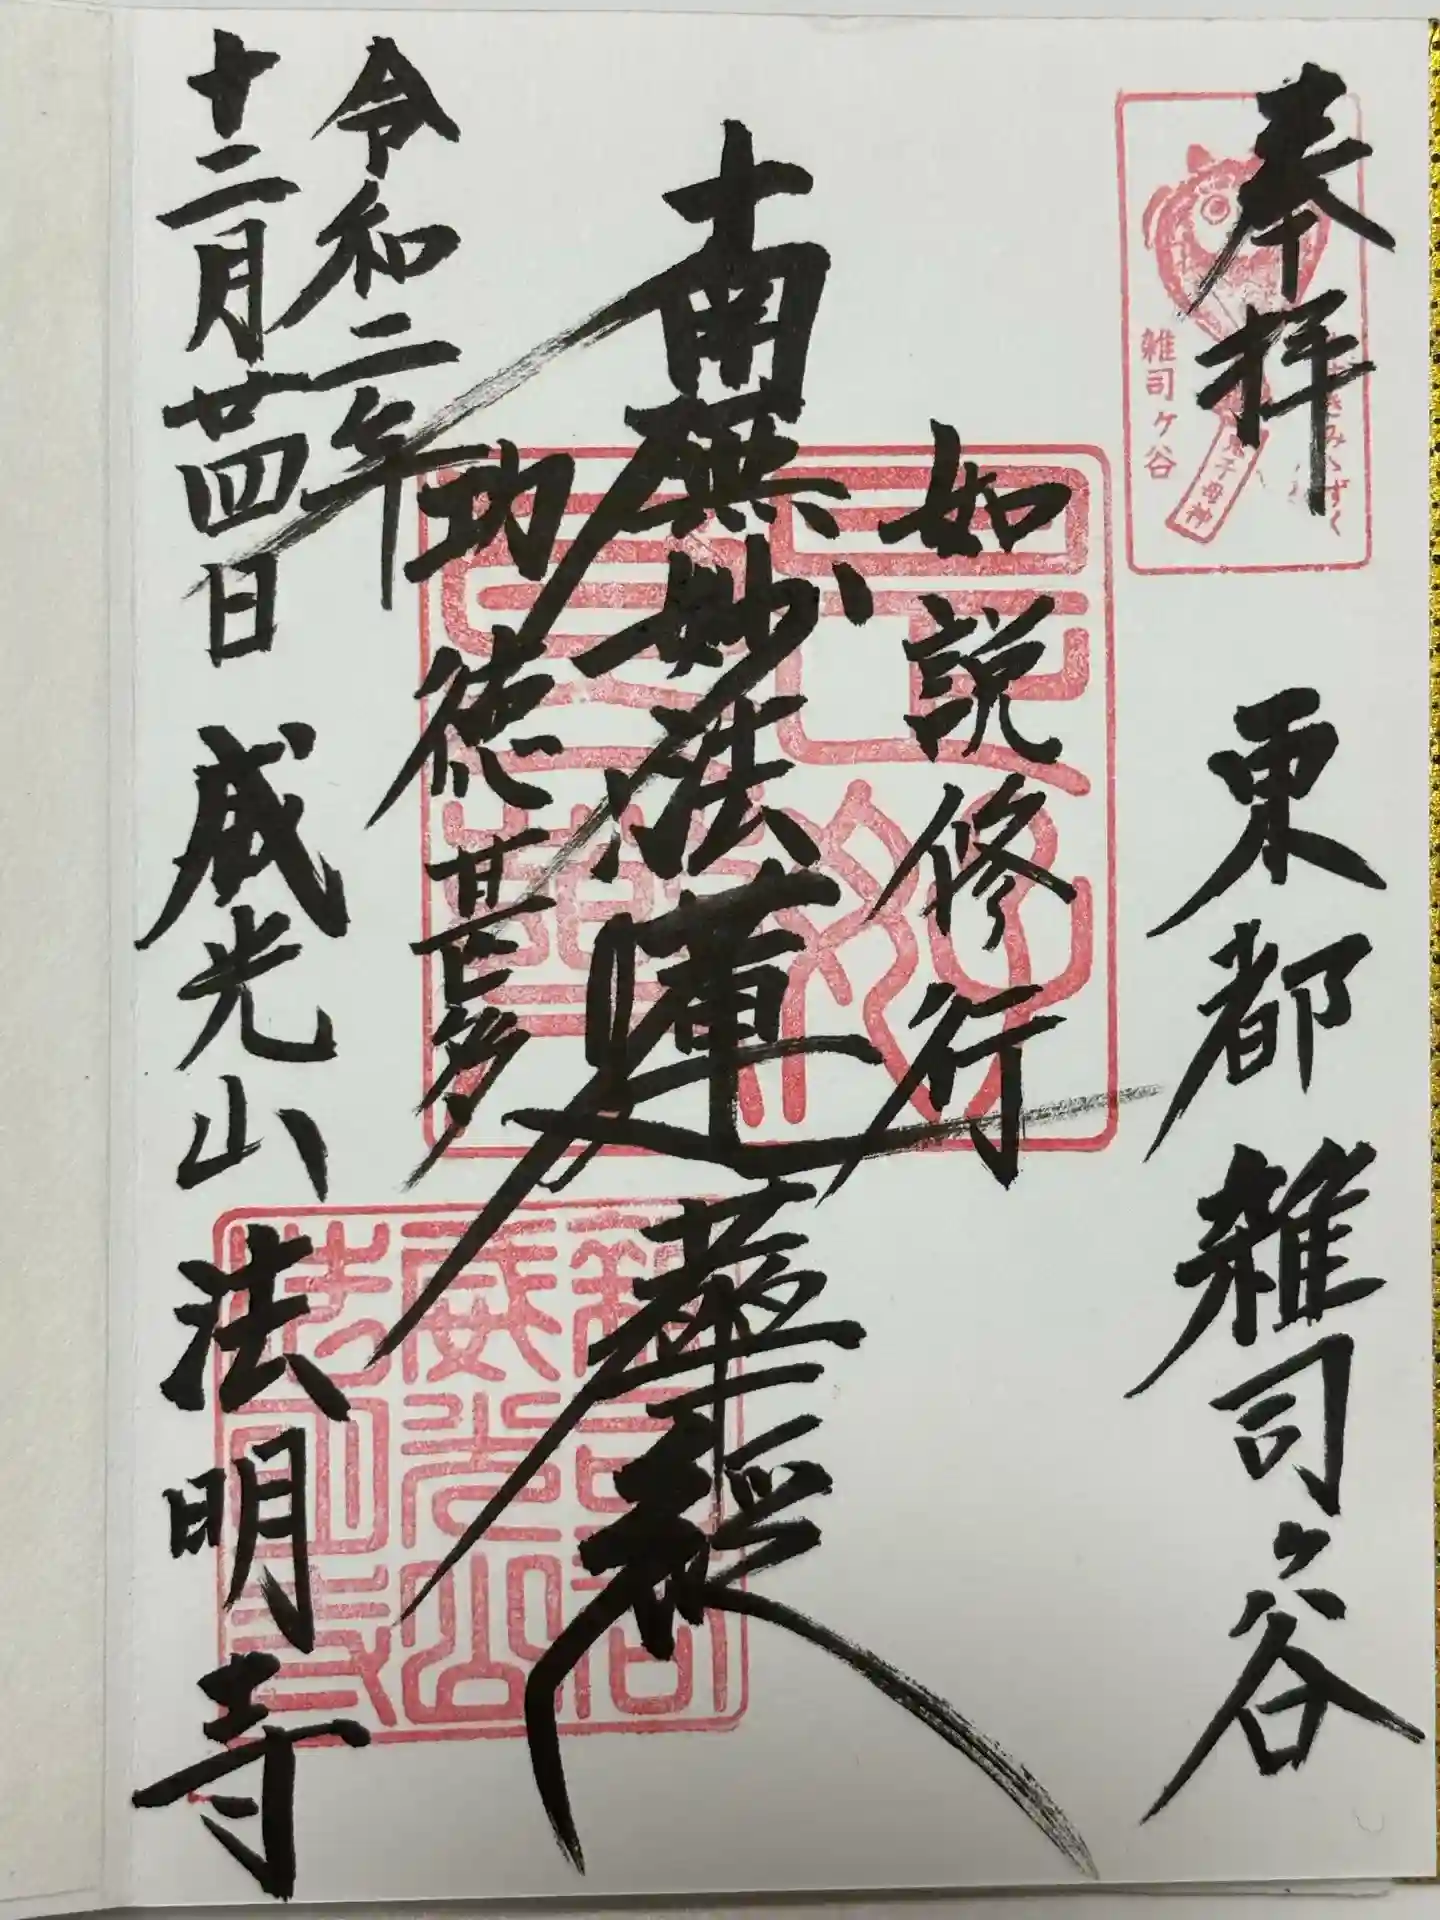 奉拝
東都 雑司ケ谷
雑司ケ谷
鬼子母神
如説修行
南無妙法蓮華経
功徳甚多
令和二年
十二月廿四日 威光山 法明寺